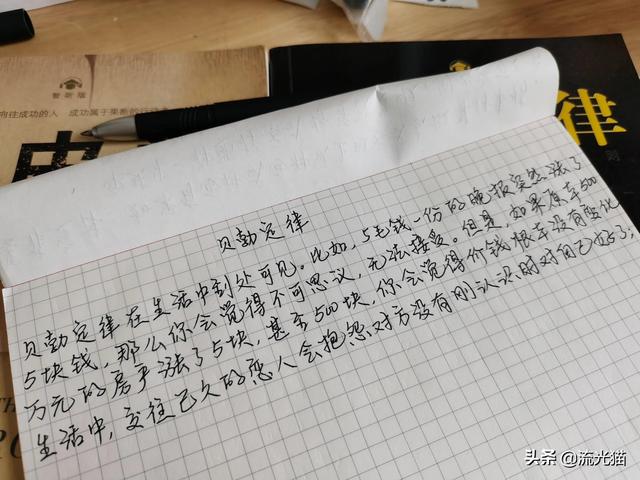 向往成功的人 成功属于果断的行动
律
贝勃定律
贝勃定律在生活中到处可见。比如,5毛钱一份的晚报突然涨了
5块钱,那么你会觉得不可思议,无法接受。但是,如果原本500
万元的房产涨了5块,甚至500块,你会觉得价钱根本没有变化
生活中,交往已久的恋人会抱怨对方没有刚认识时对自己好了;
TH
头条 @流光猫